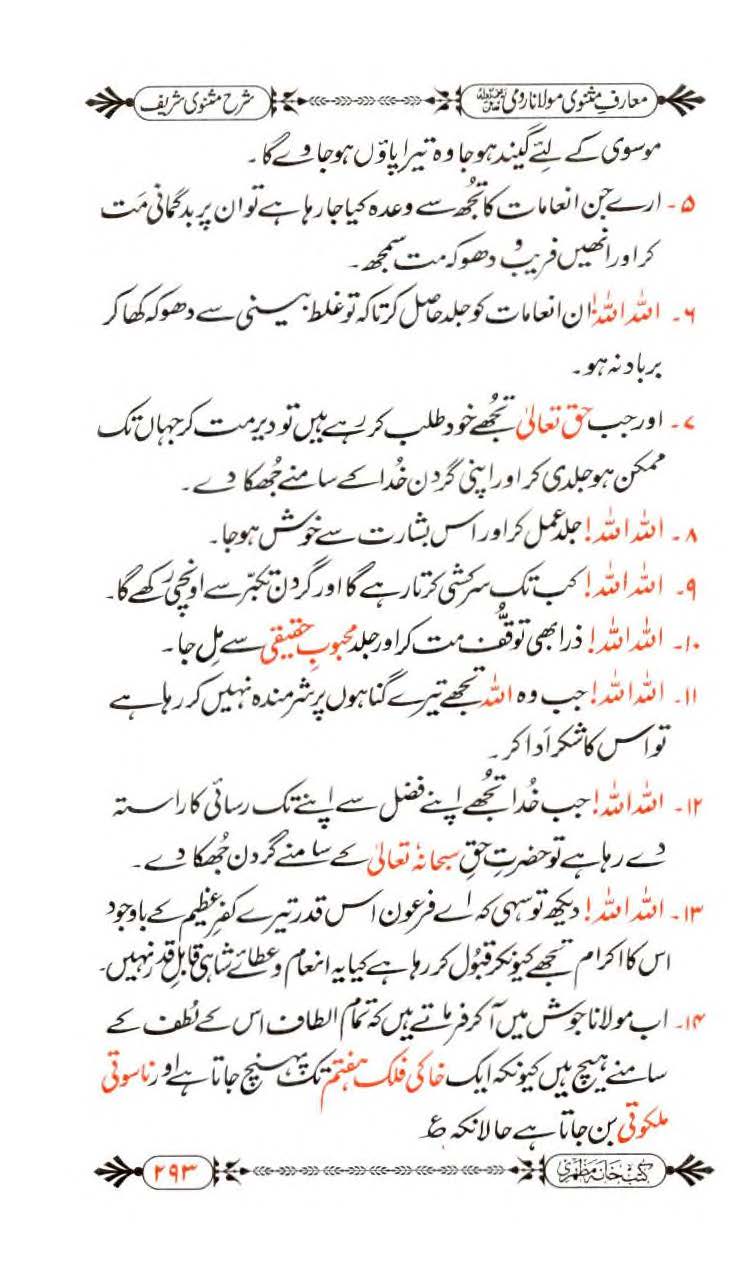 معارفِ مثنوی مولانا رومی رحمۃ اللہ علیہ
شرح مثنوی شریف
موسوی کے لئے گیند ہوجا وہ تیرا پاؤں ہوجاوے گا۔
۵۔ ارے جن انعامات کا تجھ سے وعدہ کیا جا رہا ہے تو ان پر بدگمانی مَت
کر اور انھیں فریب و دھوکہ مت سمجھ۔
۶۔ اللہ اللہ! ان انعامات کو جلد حاصل کر تاکہ تو غلط بینی سے دھوکہ کھا کر
برباد نہ ہو۔
۷۔ اور جب حق تعالیٰ تجھے خود طلب کر رہے ہیں تو دیر مت کر جہاں تک
ممکن ہو جلدی کر اور اپنی گردن خُدا کے سامنے جُھکا دے۔
۸۔ اللہ اللہ! جلد عمل کر اور اس بشارت سے خوش ہوجا۔
۹۔ اللہ اللہ! کب تک سرکشی کرتا رہے گا اور گردن تکبّر سے اونچی رکھے گا۔
۱۰۔ اللہ اللہ! ذرا بھی توقُّف مت کر اور جلد محبوبِ حقیقی سے مِل جا۔
۱۱۔ اللہ اللہ! جب وہ اللہ تجھے تیرے گناہوں پر شرمندہ نہیں کر رہا ہے
تو اس کا شکر اَدا کر۔
۱۲۔ اللہ اللہ! جب خُدا تجھے اپنے فضل سے اپنے تک رسائی کا راستہ
دے رہا ہے تو حضرتِ حق سبحانہٗ تعالیٰ کے سامنے گردن جُھکا دے۔
۱۳۔ اللہ اللہ! دیکھ تو سہی کہ اے فرعون اس قدر تیرے کفرِ عظیم کے باوجود
اس کا اکرام تجھے کیونکر قبُول کر رہا ہے کیا یہ انعام و عطائے شاہی قابلِ قدر نہیں۔
۱۴۔ اب مولانا جوش میں آ کر فرماتے ہیں کہ تمام الطاف اس کے لُطف کے
سامنے ہیچ ہیں کیونکہ ایک خاکی فلک ہفتم تک پہنچ جاتا ہے اور ناسوتی
ملکوتی بن جاتا ہے حالانکہ ؏
کتب خانہ مظہری
۲۹۳